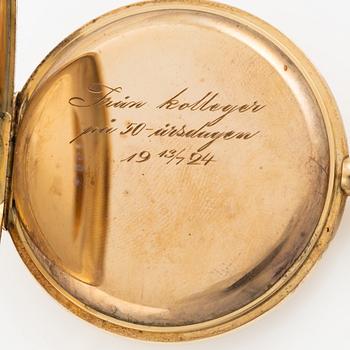 Från kolleger
på 50-årsdagen
19 13/7 24